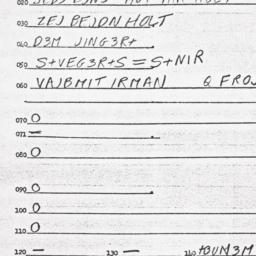 030 ZEJ BEJDN HOLT
040 D3M JING3R+
050 S+VEG3R+S = S+NIR
060 VAJBMIT IRMAN Q FROJ
070 O
071 —
080 O
090 O
100 O
110 O
120 — 130 — 140 +BUN3M